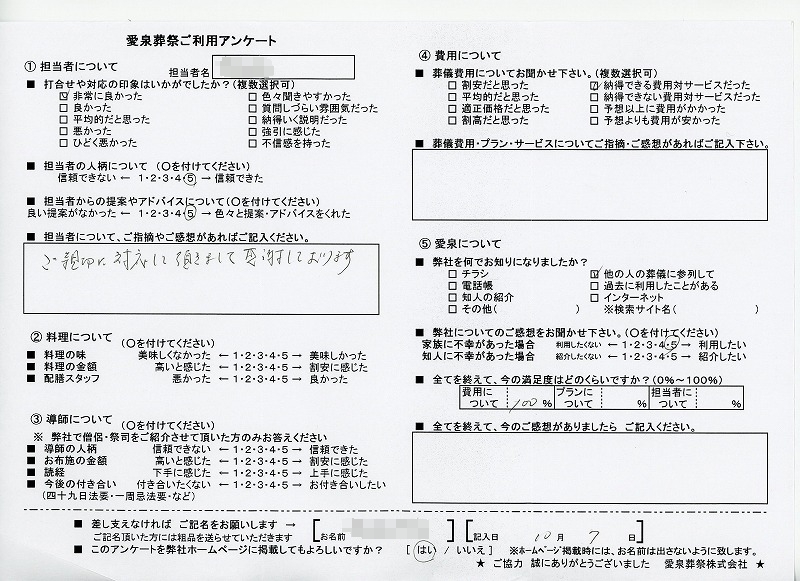 愛泉葬祭ご利用アンケート
① 担当者について
担当者名
■ 打合せや対応の印象はいかがでしたか？(複数選択可)
☑ 非常に良かった □ 色々聞きやすかった
□ 良かった □ 質問しづらい雰囲気だった
□ 平均的だと思った □ 納得いく説明だった
□ 悪かった □ 強引に感じた
□ ひどく悪かった □ 不信感を持った
■ 担当者の人柄について (○を付けてください)
信頼できない ← 1・2・3・4・5 → 信頼できた
■ 担当者からの提案やアドバイスについて(○を付けてください)
良い提案がなかった ← 1・2・3・4・5 → 色々と提案・アドバイスをくれた
■ 担当者について、ご指摘やご感想があればご記入ください。
ご親切に対応して頂きまして感謝しております
② 料理について (○を付けてください)
■ 料理の味 美味しくなかった ← 1・2・3・4・5 → 美味しかった
■ 料理の金額 高いと感じた ← 1・2・3・4・5 → 割安に感じた
■ 配膳スタッフ 悪かった ← 1・2・3・4・5 → 良かった
③ 導師について (○を付けてください)
※ 弊社で僧侶・祭司をご紹介させて頂いた方のみお答えください
■ 導師の人柄 信頼できない ← 1・2・3・4・5 → 信頼できた
■ お布施の金額 高いと感じた ← 1・2・3・4・5 → 割安に感じた
■ 読経 下手に感じた ← 1・2・3・4・5 → 上手に感じた
■ 今後の付き合い 付き合いたくない ← 1・2・3・4・5 → お付き合いしたい
(四十九日法要・一周忌法要・など)
④ 費用について
■ 葬儀費用についてお聞かせ下さい。(複数選択可)
□ 割安だと思った ☑ 納得できる費用対サービスだった
□ 平均的だと思った □ 納得できない費用対サービスだった
□ 適正価格だと思った □ 予想以上に費用がかかった
□ 割高だと思った □ 予想よりも費用が安かった
■ 葬儀費用・プラン・サービスについてご指摘・ご感想があればご記入下さい。
⑤ 愛泉について
■ 弊社を何でお知りになりましたか？
□ チラシ ☑ 他の人の葬儀に参列して
□ 電話帳 □ 過去に利用したことがある
□ 知人の紹介 □ インターネット
□ その他( ) ※検索サイト名( )
■ 弊社についてのご感想をお聞かせ下さい。(○を付けてください)
家族に不幸があった場合 利用したくない ← 1・2・3・4・5 → 利用したい
知人に不幸があった場合 紹介したくない ← 1・2・3・4・5 → 紹介したい
■ 全てを終えて、今の満足度はどのくらいですか？(0%～100%)
費用について 100 % プランについて % 担当者について %
■ 全てを終えて、今のご感想がありましたら ご記入ください。
■ 差し支えなければ ご記名をお願いします → [お名前 ] [記入日 10 月 7 日]
ご記名頂いた方には粗品を送らせていただきます
■ このアンケートを弊社ホームページに掲載してもよろしいですか？ [ はい / いいえ ] ※ホームページ掲載時には、お名前は出さないように致します。
★ ご協力 誠にありがとうございました 愛泉葬祭株式会社 ★